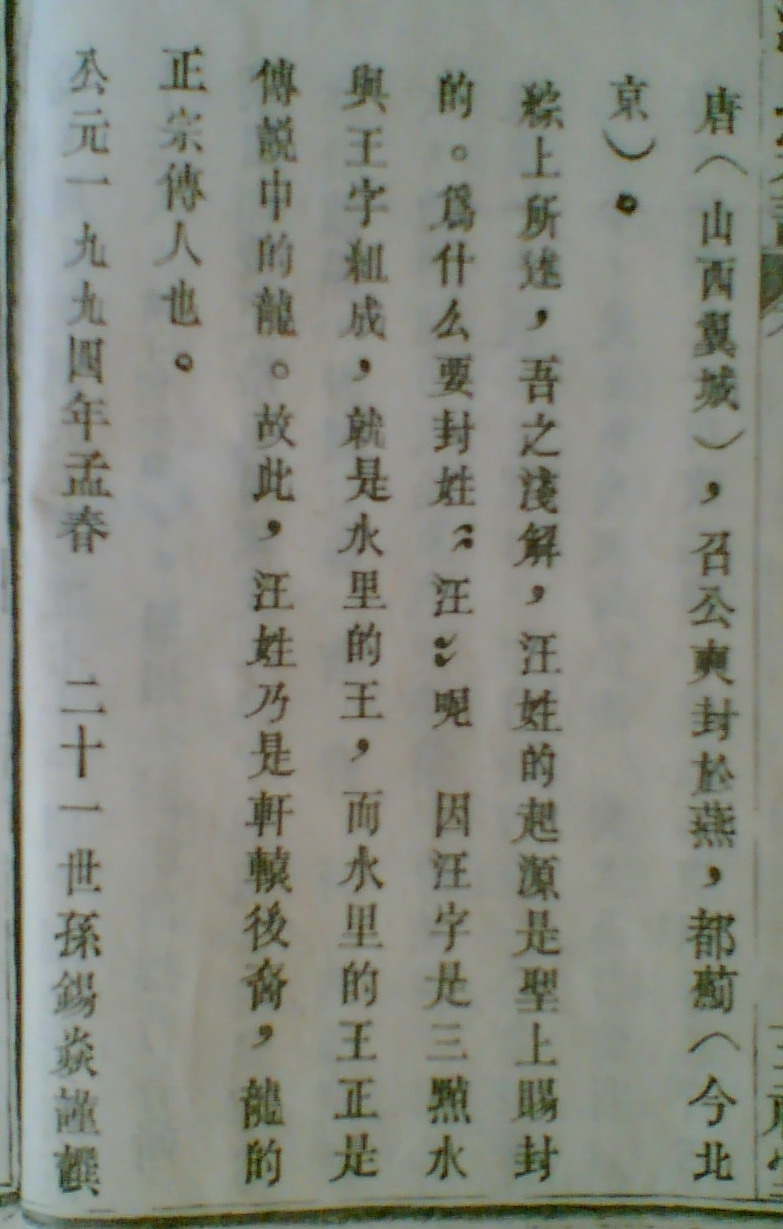 唐（山西翼城），召公奭封於燕，都薊（今北
京）。
綜上所述，吾之淺解，汪姓的起源是聖上賜封
的。爲什么要封姓“汪”呢 因汪字是三點水
與王字組成，就是水里的王，而水里的王正是
傳說中的龍。故此，汪姓乃是軒轅後裔，龍的
正宗傳人也。
公元一九九四年孟春 二十一世孫錫焱謹撰